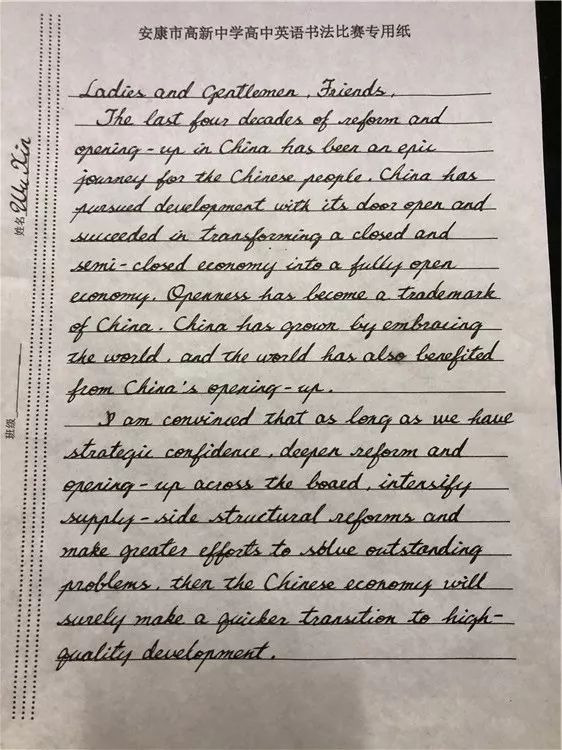 安康市高新中学高中英语书法比赛专用纸
姓名 Wu Xin
班级
Ladies and Gentlemen, Friends,
The last four decades of reform and
opening-up in China has been an epic
journey for the Chinese people. China has
pursued development with its door open and
succeeded in transforming a closed and
semi-closed economy into a fully open
economy. Openness has become a trademark
of China. China has grown by embracing
the world, and the world has also benefited
from China's opening-up.
I am convinced that as long as we have
strategic confidence, deepen reform and
opening-up across the board, intensify
supply-side structural reforms and
make greater efforts to solve outstanding
problems, then the Chinese economy will
surely make a quicker transition to high-
quality development.